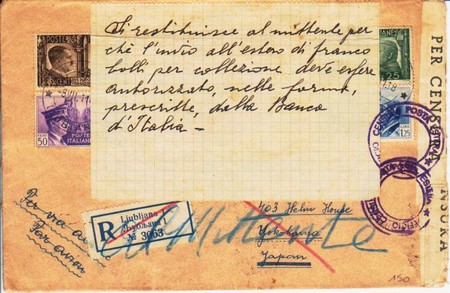 POSTE
Si restituisce al mittente per
chè l'invio all'estero di franco
bolli per collezione deve essere
autorizzato, nelle forme
prescritte, dalla Banca
d'Italia -
50
POSTE
ITALIANE
1.25
PER CENSURA
CENSURA
POSTA ESTERA
Per via
Per avion
R
Ljubljana 1
Љубљана 1
№ 3063
al Mittente
403 Helm House
Yokohama
Japan
150